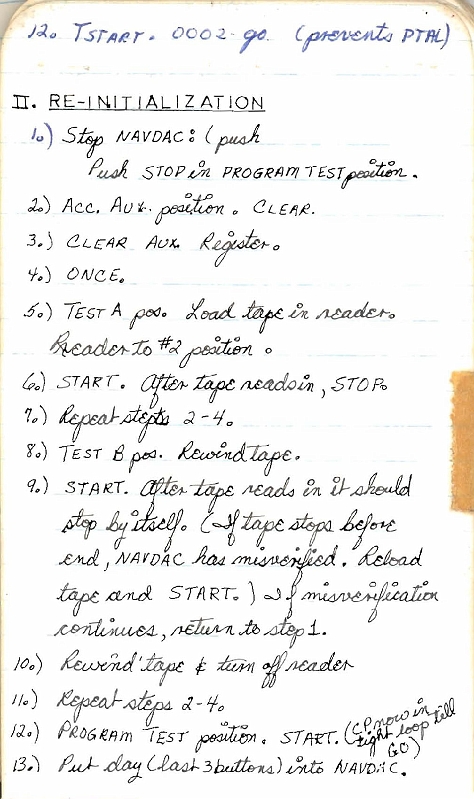 12. TSTART. 0002-go. (prevents PTAL)
II. RE-INITIALIZATION
1.) Stop NAVDAC: (push
Push STOP in PROGRAM TEST position.
2.) ACC. AUX. position. CLEAR.
3.) CLEAR AUX. Register.
4.) ONCE.
5.) TEST A pos. Load tape in reader.
Reader to #2 position.
6.) START. After tape reads in, STOP.
7.) Repeat steps 2-4.
8.) TEST B pos. Rewind tape.
9.) START. After tape reads in it should
stop by itself. (If tape stops before
end, NAVDAC has misverified. Reload
tape and START.) If misverification
continues, return to step 1.
10.) Rewind tape & turn off reader
11.) Repeat steps 2-4.
12.) PROGRAM TEST position. START. (CP now in
tight loop tell
GO)
13.) Put day (last 3 buttons) into NAVDAC.